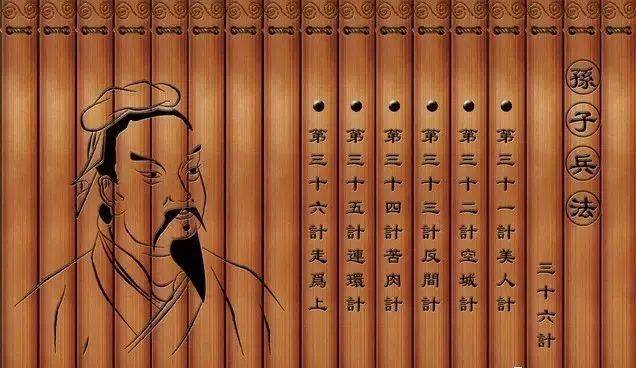 孫子兵法
三十六計
第三十一計美人計
第三十二計空城計
第三十三計反間計
第三十四計苦肉計
第三十五計連環計
第三十六計走爲上